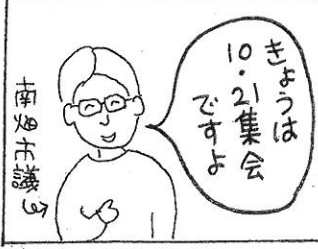 きょうは
10・21集会
ですよ
南畑市議→